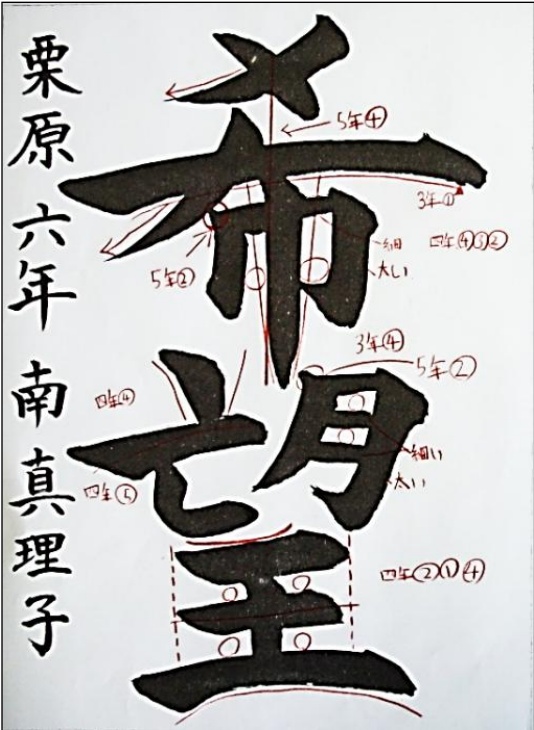 希望
栗原 六年 南 真理子
5年④
3年①
細
四年④③②
太い
5年②
3年④
5年②
四年④
細い
太い
四年⑤
四年②①④